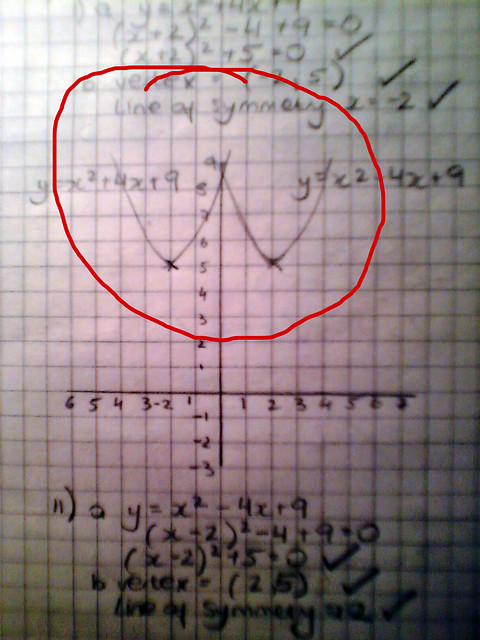 i) a y = x² + 4x + 9
(x+2)² - 4 + 9 = 0
(x+2)² + 5 = 0 ✓
b vertex = (-2, 5) ✓
Line of symmetry x = -2 ✓
y = x² + 4x + 9
y = x² - 4x + 9
9
8
7
6
5
4
3
2
1
6 5 4 3 -2 1 1 2 3 4 5 6 7
-1
-2
-3
ii) a y = x² - 4x + 9
(x - 2)² - 4 + 9 = 0
(x - 2)² + 5 = 0 ✓
b vertex = (2 5) ✓
Line of symmetry = 2 ✓